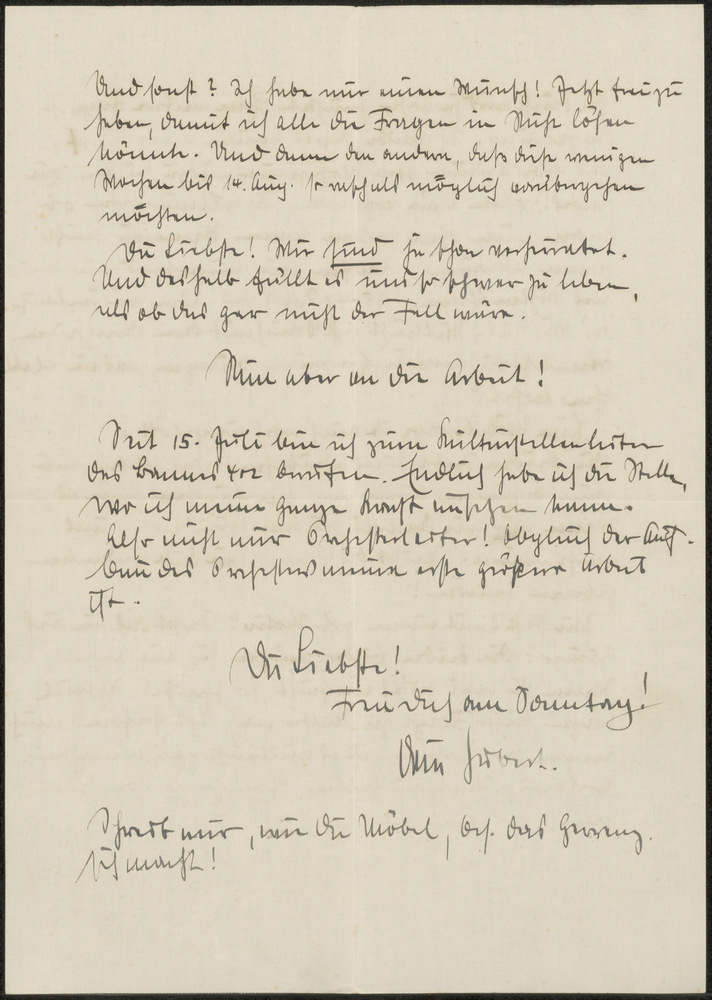 Und sonst? Ich habe nur einen Wunsch! Jetzt frei zu
haben, damit ich alle die Fragen in Ruhe lösen
könnte. Und dann den andern, daß diese wenigen
Wochen bis 14. Aug. so rasch als möglich vorübergehen
möchten.
Du Liebste! Wir sind ja schon verheiratet.
Und deshalb fällt es uns so schwer zu leben,
als ob das gar nicht der Fall wäre.
Nun aber an die Arbeit!
Seit 15. Juli bin ich zum Kulturstellenleiter
des Bannes 402 berufen. Endlich habe ich die Stelle,
wo ich meine ganze Kraft einsetzen kann.
Also nicht nur Orchesterleiter! Obgleich der Auf-
bau des Orchesters meine erste größere Arbeit
ist.
Du Liebste!
Freu dich am Sonntag!
Dein Hubert.
Schreib mir, wie die Möbel, bes. das Herrenz.
sich macht!